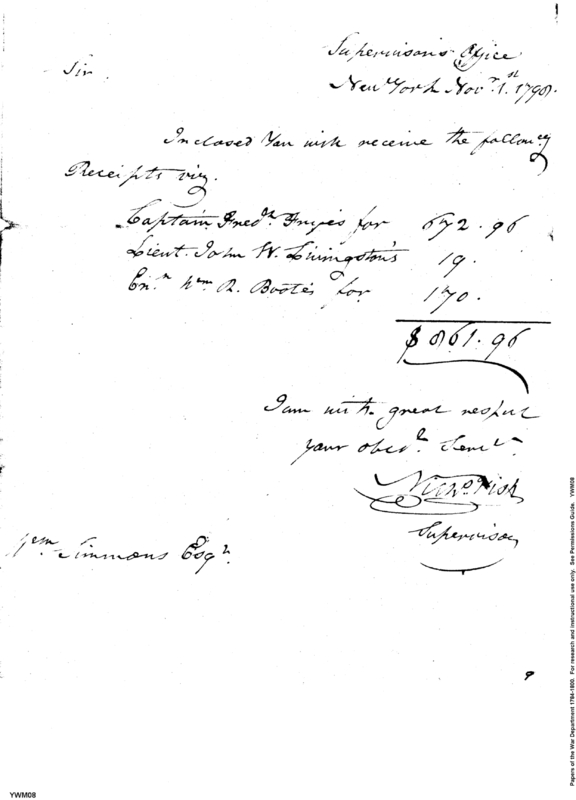 Supervisor's Office
New York Novr. 1st. 1798.
Sir.
Inclosed You will receive the followg
Receipts viz.
Captain Fredk. Fryes for 672.96
Lieut. John W. Livingston's 19.
Enn. Wm R. Boote's for 170.
$ 861.96
I am with great respect
your obedt. Servt.
Nichs. Fish
Supervisor
Wm Simmons Esqr.
Papers of the War Department 1784-1800. For research and instructional use only. See Permissions Guide. YWM08
YWM08